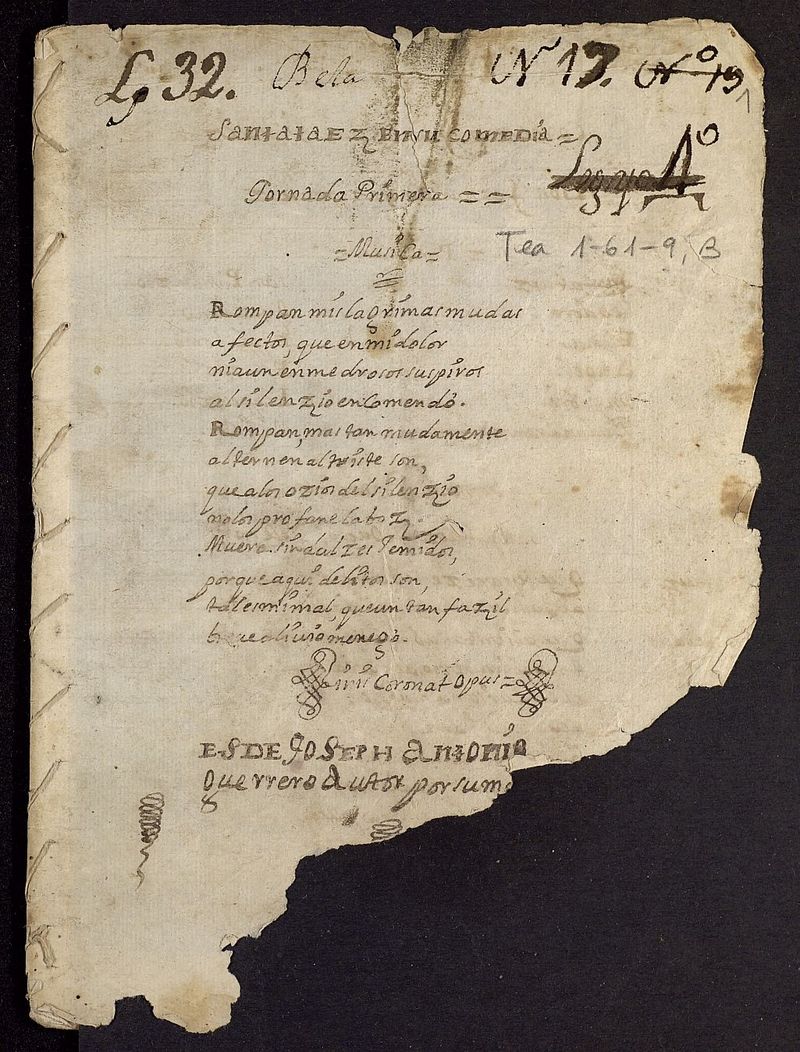 Lº 32. Beta Nº 13. Nº 19
comedia =
Legajo 1º
Jornada Primera = =
= Musica =
Tea 1-61-9, B
Rompan mis lagrimas mudas
afectos, que en mi dolor
ni aun en medrosos suspiros
al silenzio encomendò.
Rompan, mas tan mudamente
alternen al triste son,
que a los ozios del silenzio
no los profane la boz.
Muere sin dulzes jemidos,
porque aqui delitos son,
tal es mi mal, que un tan fazil
breve alivio menego.
Finis Coronat Opus =
ES DE JOSEPH Antonio
Guerrero Autor por su m